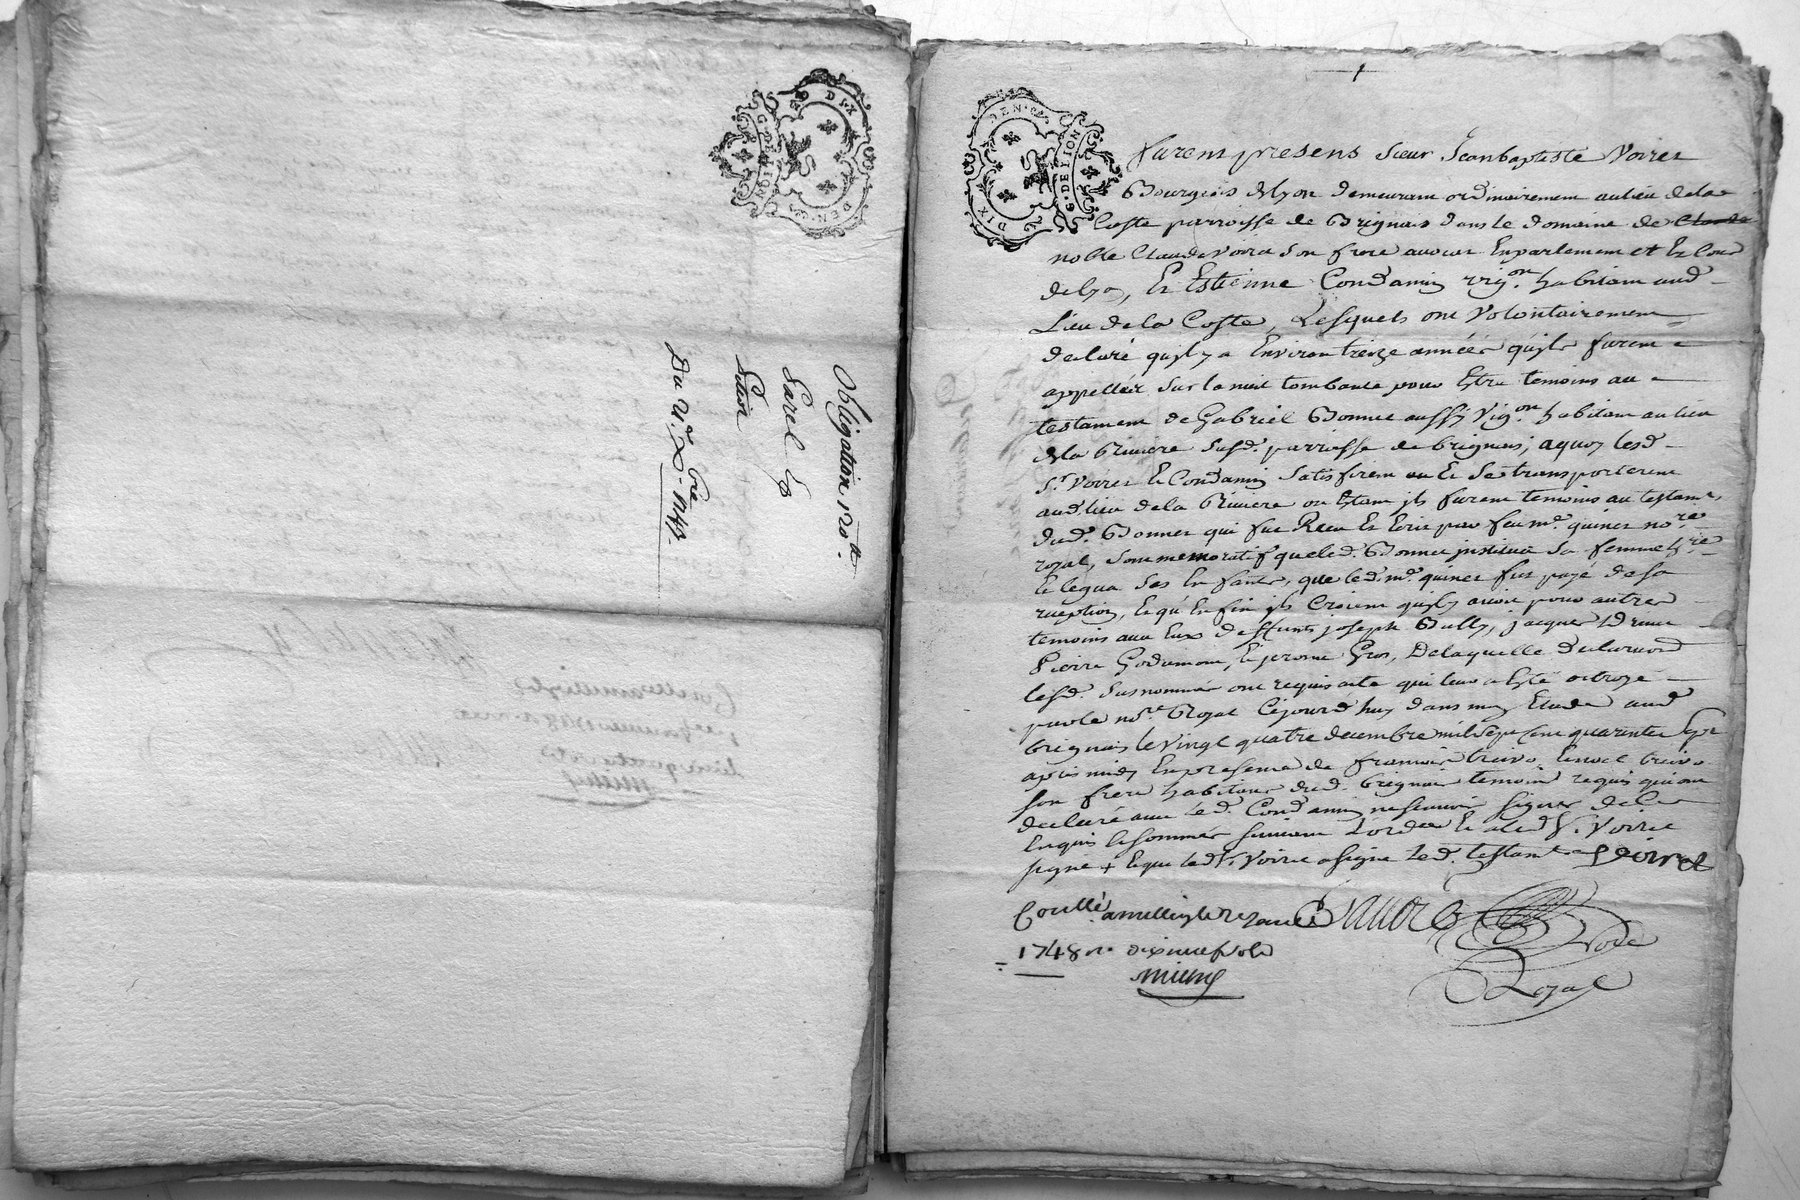 G. DE LION
DIX DEN.ers
Obligation 120 tt
Sarel
Du 21e xbre 1747.
1
DIX DEN.ers
G. DE LION
furent presens sieur Jeanbaptiste Voiret
Bourgeois de Lyon demeurant ordinairement au lieu de la
Coste parroisse de Brignais dans le domaine de
noble Claude Voiret son frere avocat En parlement et Es Cours
de Lyon, Et Estienne Condamin vign.on habitant aud.
Lieu de la Coste, Lesquels ont volontairement
declaré quil y a Environ treize années quils furent
appellés sur la nuit tombante pour Estre temoins au
testament de Gabriel Bonnet aussy vig.on habitant au lieu
de la Riviere susd. parroisse de brignais; a quoy lesd.
Sr. Voiret Et Condamin satisfirent et se transporterent
aud. lieu de la Riviere ou Estant ils furent temoins au testamt.
dud. Bonnet qui fut Receu Et Ecrit par feu me. quinet no.re
royal, sont memoratif que led. Bonnet institua sa femme h.re
Et legua ses Enfants, que led. me. quinet fut payé de sa
reception, Et qu'Enfin ils Croient quil y avoit pour autres
temoins avec Eux deffunts joseph Bully, jacques
Pierre Godemont, Et jerome Gros, De laquelle declaration
lesd. susnommés ont requis acte qui leur a Esté octroyé
par le no.re Royal Cejourd'huy dans mon Etude aud.
brignais le vingt quatre decembre mil sept cent quarante sept
apres midy En presence de francois
son frere habitans dud. brignais temoins requis qui ont
declaré avec led. Condamin ne scavoir signer de ce
Enquis Et sommés suivant L'ordce Et a led. Sr. Voiret
signé + Et que led. Sr. Voiret a signé led. testamt.
Voiret
Coullé a millery le 2e janvier
1748 Rs dix neuf sols
no.re
Royal